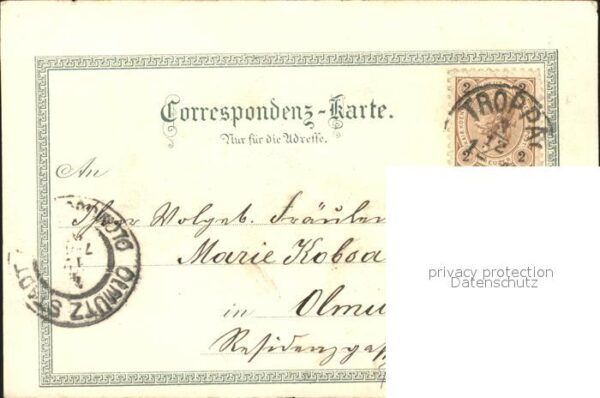 Correspondenz-Karte.
Nur für die Adresse.
2 2
TROPPAU
2
An
Ihrer Wolgeb. Fräulein
Marie Kobsa
in Olmü
Residenzgas
OLMÜTZ STADT
privacy protection
Datenschutz